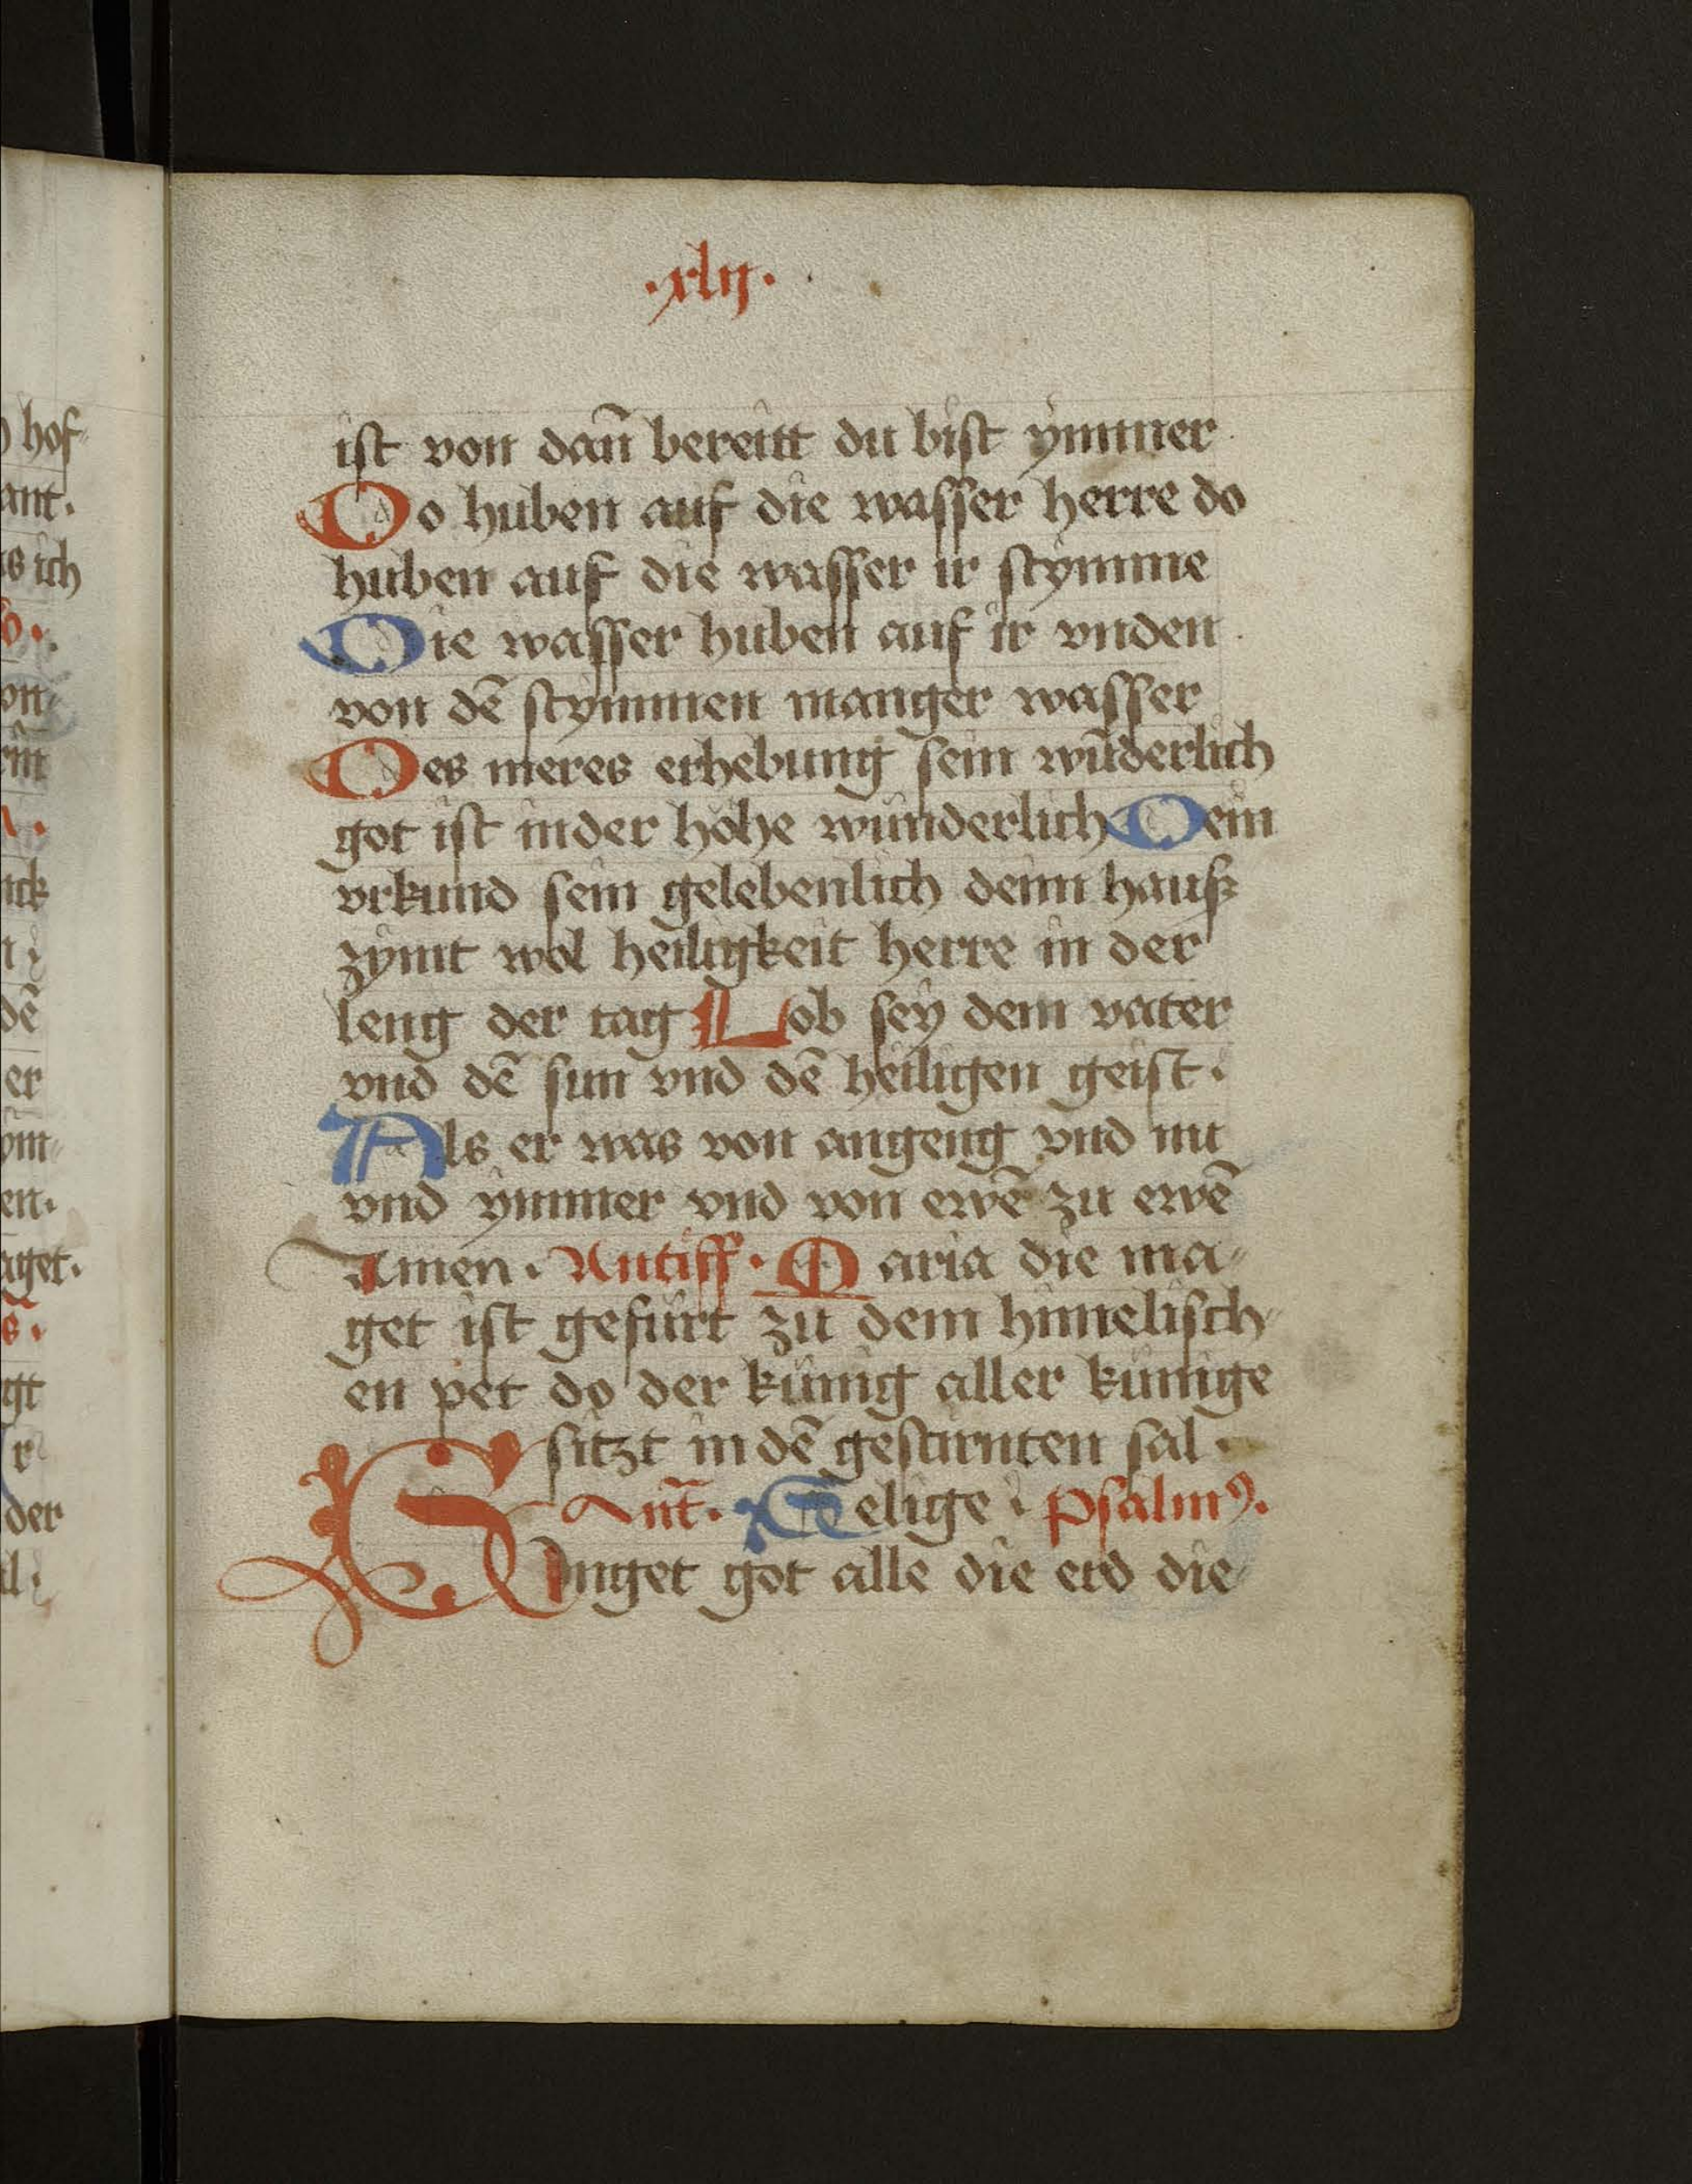 ·xlij·
ist von dan̄ bereitt du bist ymmer
Do huben auf die wasser herre do
huben auf die wasser ir stymme
Die wasser huben auf ir vnden
von dē stymmen manger wasser
Des meres erhebung sein wūderlich
got ist in der höhe wunderlich Dein
vrkund sein gelebenlich deim hauß
zymt wol heiligkeit herre in der
leng der tag Lob sey dem vater
vnd dē sun vnd dē heiligen geist·
Als er was von angeng vnd nu
vnd ymmer vnd von ewē zu ewē
Amen· Antiff· Maria die ma-
get ist gefürt zu dem himelisch-
en pet do der künig aller künige
sitzt in dē gestirnten sal·
Ant̄· Selige· psalmꝰ·
Singet got alle die erd die
hof-
ant·
ich
dē
er
en·
aget·
gt
der